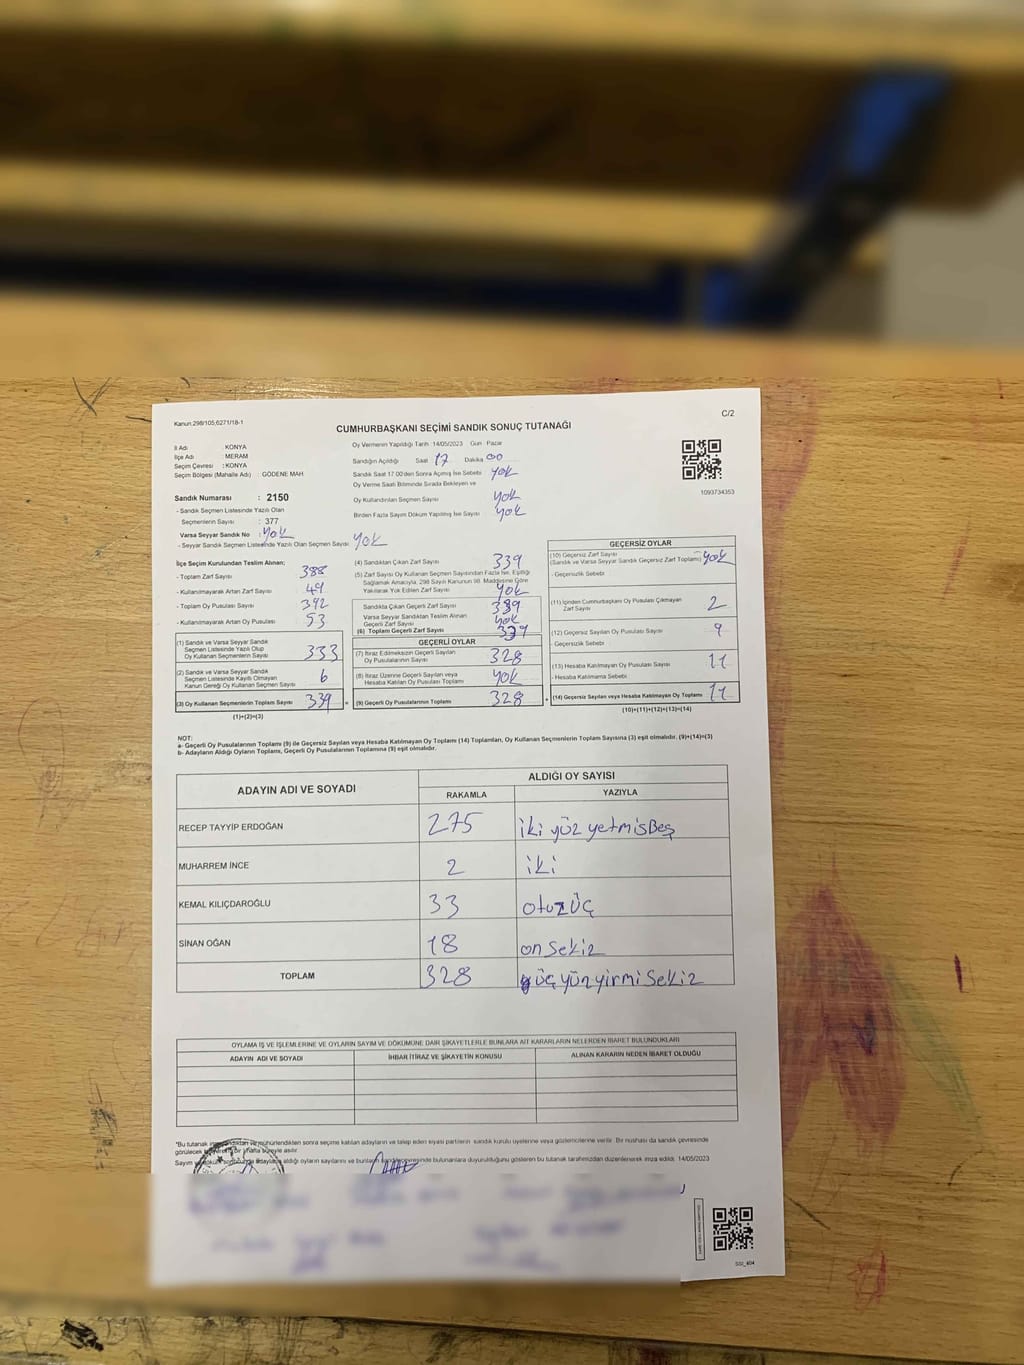 Kanun:298/105,6271/18-1
C/2
CUMHURBAŞKANI SEÇİMİ SANDIK SONUÇ TUTANAĞI
İl Adı : KONYA
İlçe Adı : MERAM
Seçim Çevresi : KONYA
Seçim Bölgesi (Mahalle Adı) : GÖDENE MAH.
Sandık Numarası : 2150
- Sandık Seçmen Listesinde Yazılı Olan
Seçmenlerin Sayısı : 377
Varsa Seyyar Sandık No : Yok
- Seyyar Sandık Seçmen Listesinde Yazılı Olan Seçmen Sayısı Yok
Oy Vermenin Yapıldığı Tarih :14/05/2023 Gün Pazar
Sandığın Açıldığı Saat 17 Dakika 00
Sandık Saat 17.00'den Sonra Açılmış İse Sebebi Yok
Oy Verme Saati Bitiminde Sırada Bekleyen ve
Oy Kullandırılan Seçmen Sayısı Yok
Birden Fazla Sayım Döküm Yapılmış İse Sayısı Yok
1093734353
İlçe Seçim Kurulundan Teslim Alınan;
- Toplam Zarf Sayısı 388
- Kullanılmayarak Artan Zarf Sayısı 49
- Toplam Oy Pusulası Sayısı 392
- Kullanılmayarak Artan Oy Pusulası 53
(1) Sandık ve Varsa Seyyar Sandık
Seçmen Listesinde Yazılı Olup
Oy Kullanan Seçmenlerin Sayısı 333
(2) Sandık ve Varsa Seyyar Sandık
Seçmen Listesinde Kayıtlı Olmayan
Kanun Gereği Oy Kullanan Seçmen Sayısı 6
(3) Oy Kullanan Seçmenlerin Toplam Sayısı 339 =
(1)+(2)=(3)
(4) Sandıktan Çıkan Zarf Sayısı 339
(5) Zarf Sayısı Oy Kullanan Seçmen Sayısından Fazla İse, Eşitliği
Sağlamak Amacıyla, 298 Sayılı Kanunun 98. Maddesine Göre
Yakılarak Yok Edilen Zarf Sayısı Yok
Sandıkta Çıkan Geçerli Zarf Sayısı 339
Varsa Seyyar Sandıktan Teslim Alınan
Geçerli Zarf Sayısı Yok
(6) Toplam Geçerli Zarf Sayısı 339
GEÇERLİ OYLAR
(7) İtiraz Edilmeksizin Geçerli Sayılan
Oy Pusulalarının Sayısı 328
(8) İtiraz Üzerine Geçerli Sayılan veya
Hesaba Katılan Oy Pusulası Toplamı Yok
(9) Geçerli Oy Pusulalarının Toplamı 328 +
GEÇERSİZ OYLAR
(10) Geçersiz Zarf Sayısı
(Sandık ve Varsa Seyyar Sandık Geçersiz Zarf Toplamı) Yok
- Geçersizlik Sebebi
(11) İçinden Cumhurbaşkanı Oy Pusulası Çıkmayan
Zarf Sayısı 2
(12) Geçersiz Sayılan Oy Pusulası Sayısı 9
- Geçersizlik Sebebi
(13) Hesaba Katılmayan Oy Pusulası Sayısı 11
- Hesaba Katılmama Sebebi
(14) Geçersiz Sayılan veya Hesaba Katılmayan Oy Toplamı 11
(10)+(11)+(12)+(13)=(14)
NOT:
a- Geçerli Oy Pusulalarının Toplamı (9) ile Geçersiz Sayılan veya Hesaba Katılmayan Oy Toplamı (14) Toplamları, Oy Kullanan Seçmenlerin Toplam Sayısına (3) eşit olmalıdır. (9)+(14)=(3)
b- Adayların Aldığı Oyların Toplamı, Geçerli Oy Pusulalarının Toplamına (9) eşit olmalıdır.
ADAYIN ADI VE SOYADI ALDIĞI OY SAYISI
RAKAMLA YAZIYLA
RECEP TAYYİP ERDOĞAN 275 iki yüz yetmisBeş
MUHARREM İNCE 2 iki
KEMAL KILIÇDAROĞLU 33 otuzüç
SİNAN OĞAN 18 on sekiz
TOPLAM 328 üç yüz yirmi sekiz
OYLAMA İŞ VE İŞLEMLERİNE VE OYLARIN SAYIM VE DÖKÜMÜNE DAİR ŞİKAYETLERLE BUNLARA AİT KARARLARIN NELERDEN İBARET BULUNDUKLARI
ADAYIN ADI VE SOYADI İHBAR İTİRAZ VE ŞİKAYETİN KONUSU ALINAN KARARIN NEDEN İBARET OLDUĞU
*Bu tutanak mühürlendikten sonra seçime katılan adayların ve talep eden siyasi partilerin sandık kurulu üyelerine veya gözlemcilerine verilir. Bir nüshası da sandık çevresinde
görülecek bir hafta süreyle asılır.
Sayım adayların aldığı oyların sayılarını ve bunların bulunanlara duyurulduğunu gösteren bu tutanak tarafımızdan düzenlenerek imza edildi. 14/05/2023